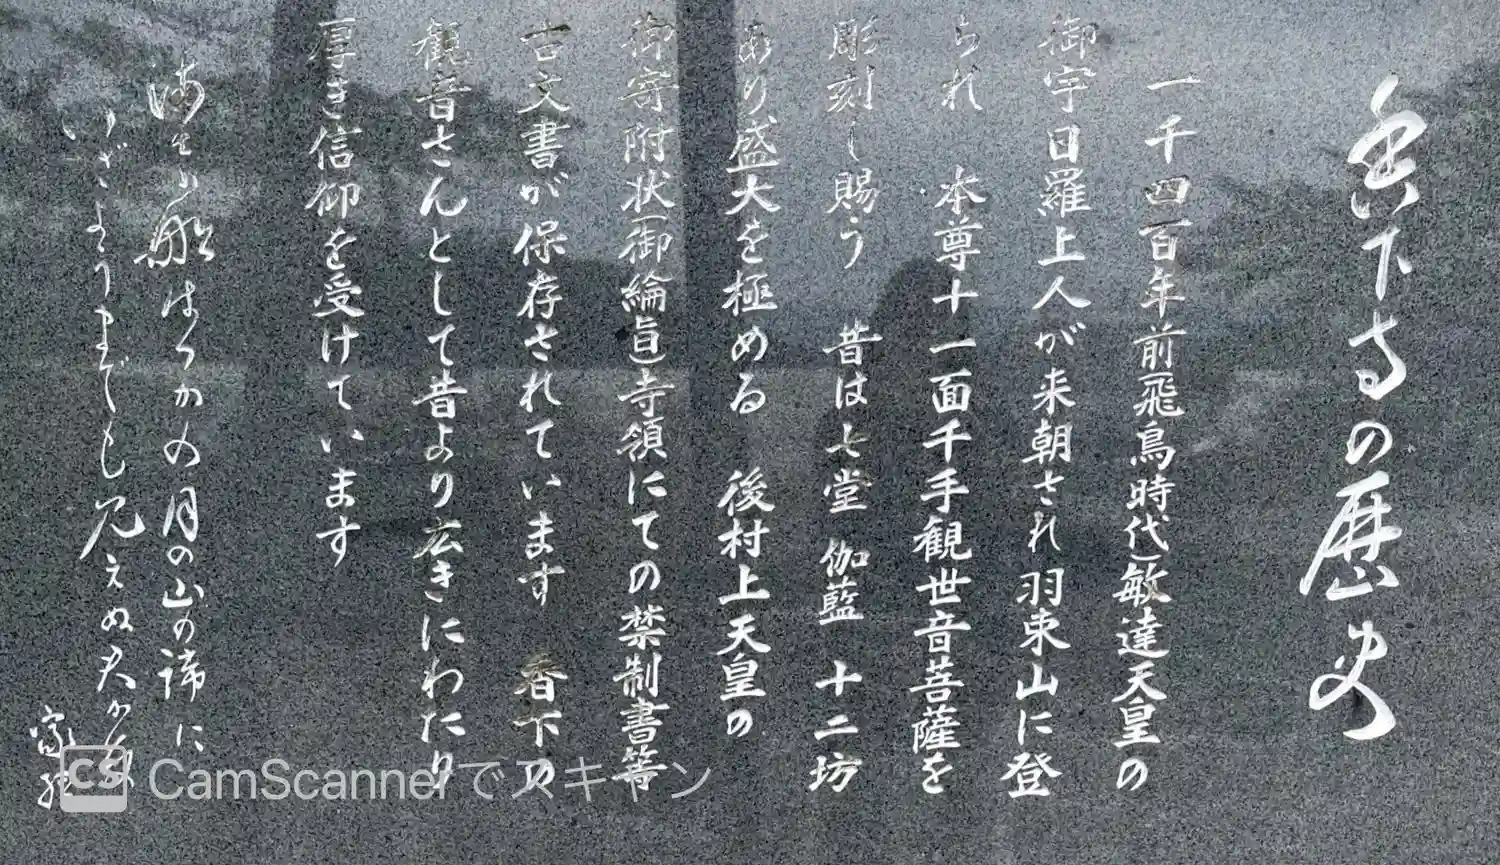 香下寺の歴史
一千四百年前飛鳥時代(敏達天皇の
御宇日羅上人が来朝され羽束山に登
られ 本尊十一面千手観世音菩薩を
彫刻し賜う 昔は七堂 伽藍 十二坊
あり盛大を極める 後村上天皇の
御寄附状(御綸旨)寺領にての禁制書等
古文書が保存されています 香下の
観音さんとして昔より広きにわたり
厚き信仰を受けています
月の山の諦に
いざようまでも見えぬ
CS CamScannerでスキャン